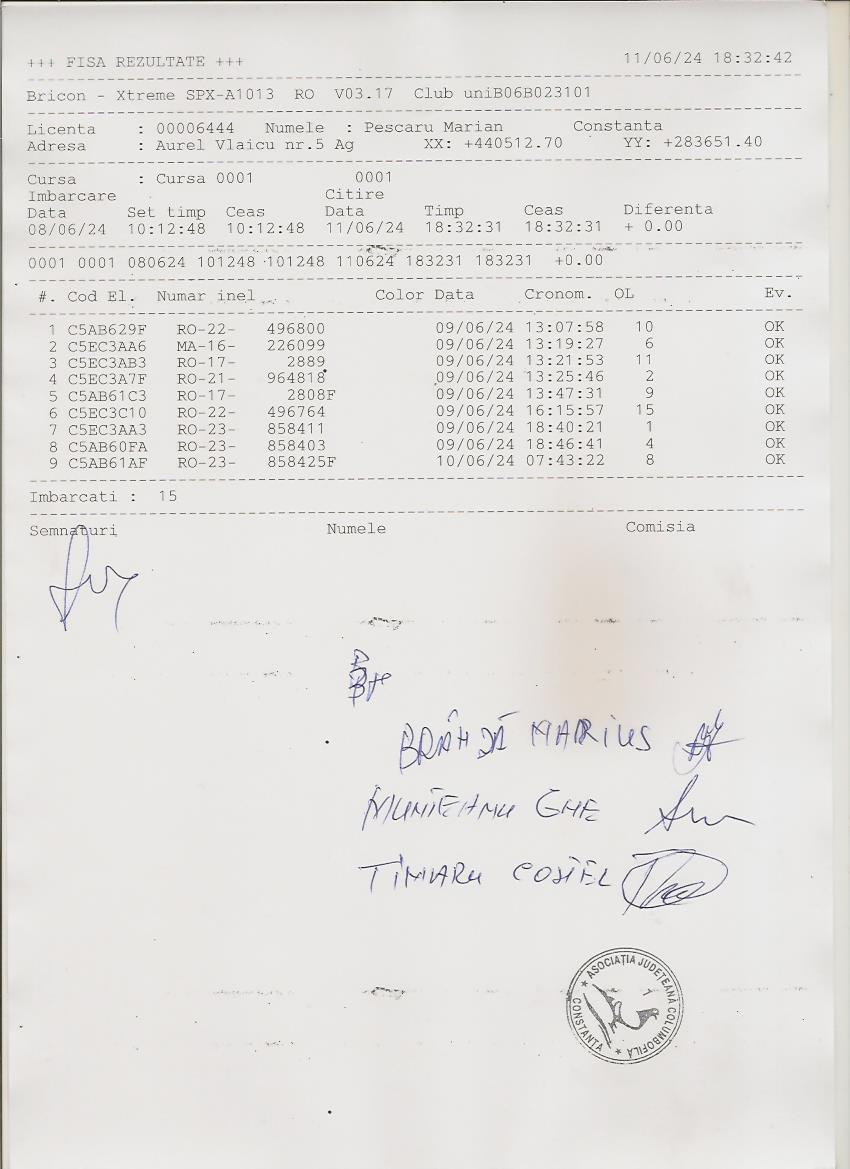 +++ FISA REZULTATE +++ 11/06/24 18:32:42
Bricon - Xtreme SPX-A1013 RO V03.17 Club uniB06B023101
Licenta : 00006444 Numele : Pescaru Marian Constanta
Adresa : Aurel Vlaicu nr.5 Ag XX: +440512.70 YY: +283651.40
Cursa : Cursa 0001 0001
Imbarcare Citire
Data Set timp Ceas Data Timp Ceas Diferenta
08/06/24 10:12:48 10:12:48 11/06/24 18:32:31 18:32:31 + 0.00
0001 0001 080624 101248 101248 110624 183231 183231 +0.00
#. Cod El. Numar inel Color Data Cronom. OL Ev.
1 C5AB629F RO-22- 496800 09/06/24 13:07:58 10 OK
2 C5EC3AA6 MA-16- 226099 09/06/24 13:19:27 6 OK
3 C5EC3AB3 RO-17- 2889 09/06/24 13:21:53 11 OK
4 C5EC3A7F RO-21- 964818 09/06/24 13:25:46 2 OK
5 C5AB61C3 RO-17- 2808F 09/06/24 13:47:31 9 OK
6 C5EC3C10 RO-22- 496764 09/06/24 16:15:57 15 OK
7 C5EC3AA3 RO-23- 858411 09/06/24 18:40:21 1 OK
8 C5AB60FA RO-23- 858403 09/06/24 18:46:41 4 OK
9 C5AB61AF RO-23- 858425F 10/06/24 07:43:22 8 OK
Imbarcati : 15
Semnaturi Numele Comisia
BRÂNZĂ MARIUS
MUNTEANU GHE
TIMARU COSTEL
★ ASOCIAȚIA JUDEȚEANĂ COLUMBOFILĂ ★ CONSTANȚA